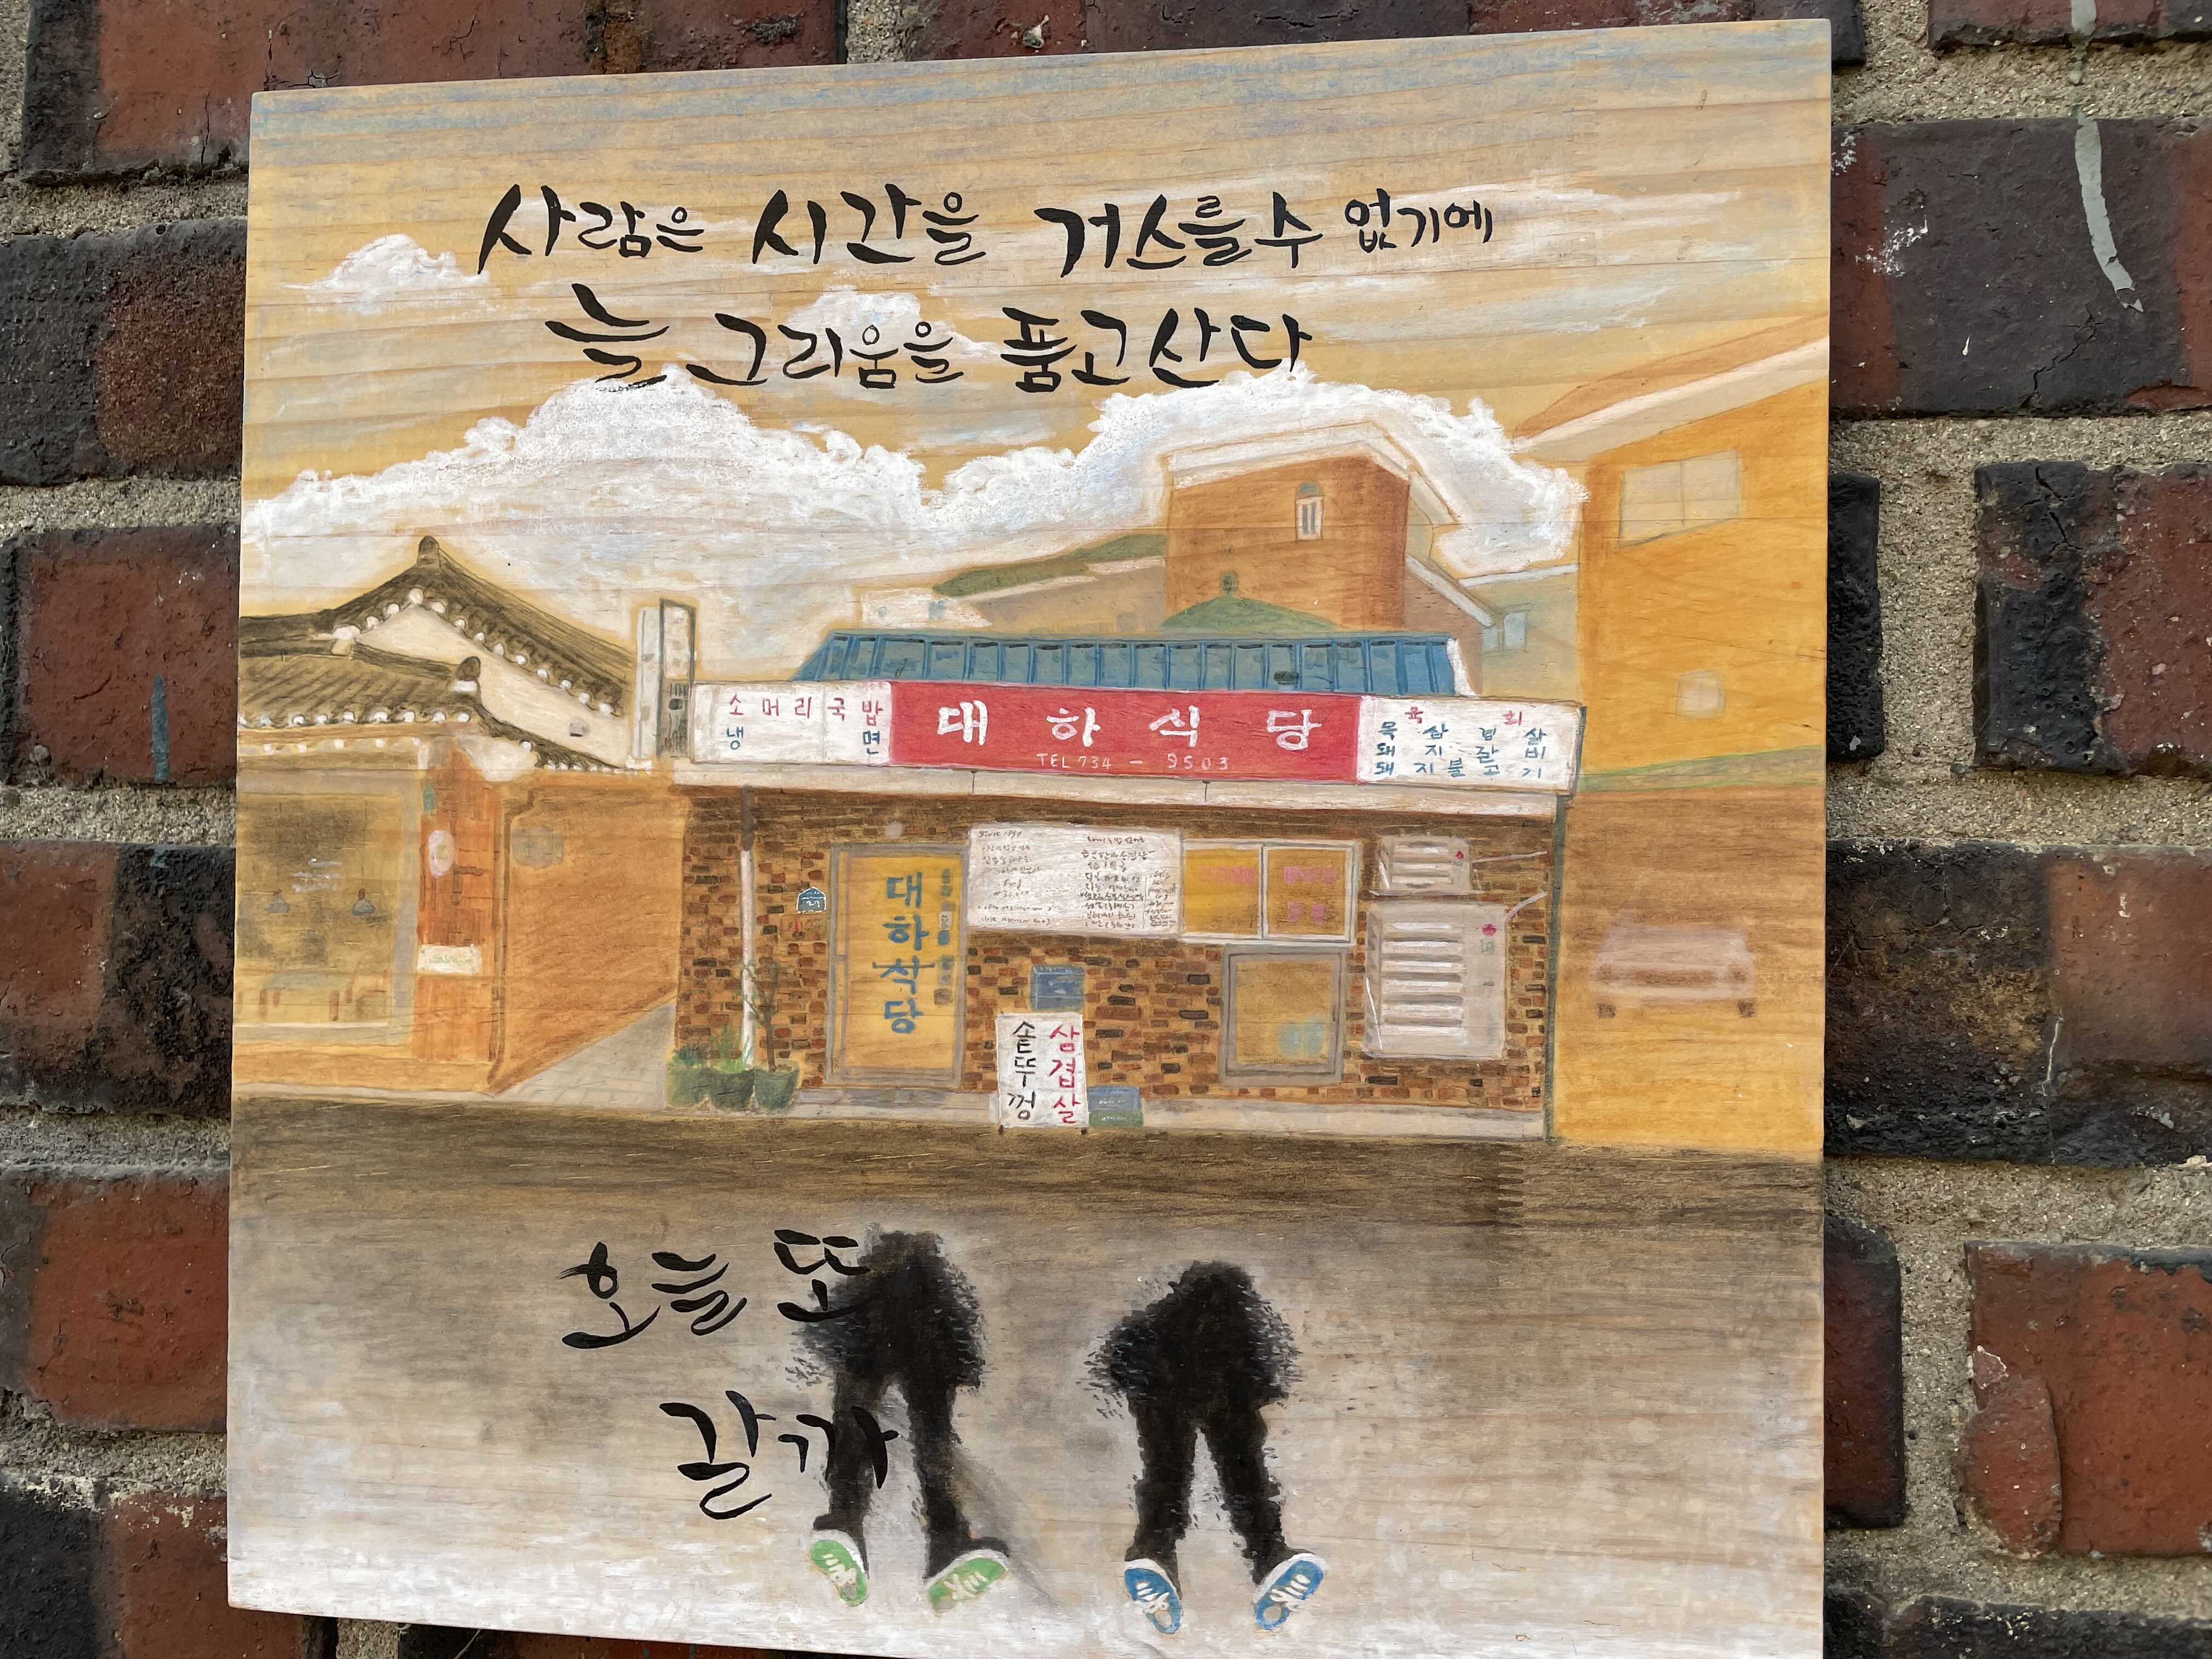 사람은 시간을 거스를수 없기에
늘 그리움을 품고산다
소머리국밥
냉면
대하식당
TEL 734-9503
육회
목삼겹살
돼지갈비
돼지불고기
대하식당
솥뚜껑
삼겹살
오늘 또
갈까